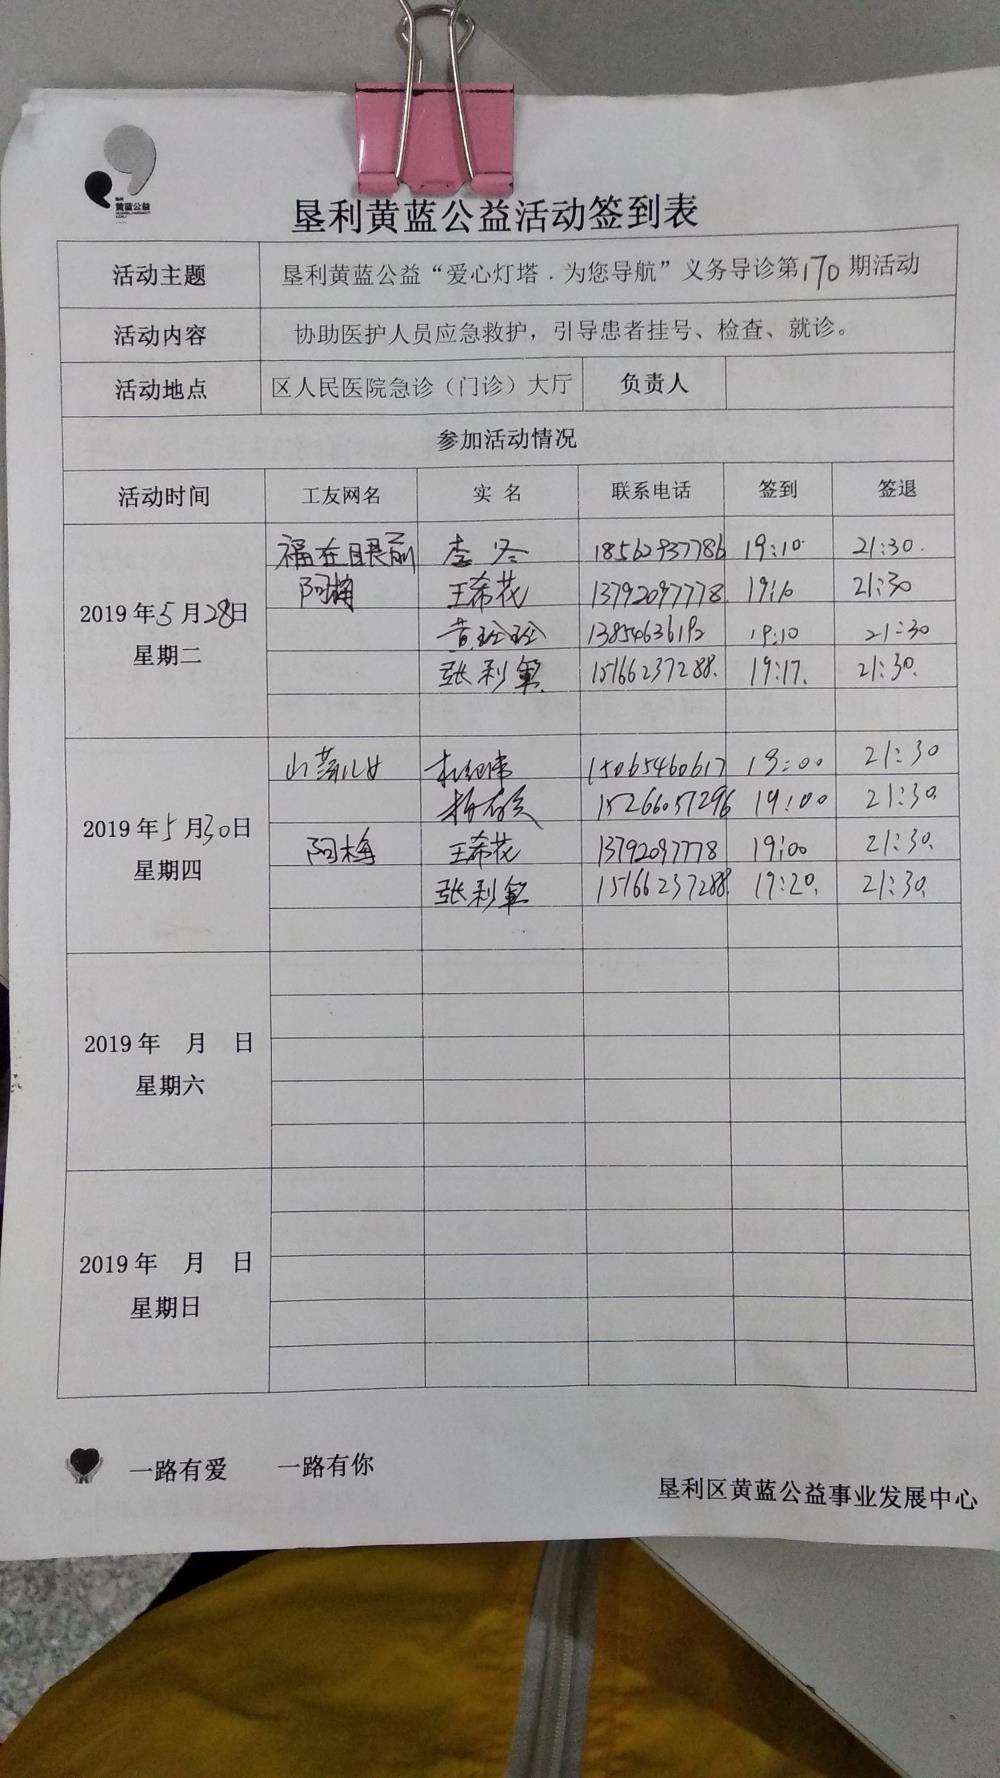 黄蓝公益
垦利黄蓝公益活动签到表
活动主题 垦利黄蓝公益“爱心灯塔．为您导航”义务导诊第170期活动
活动内容 协助医护人员应急救护，引导患者挂号、检查、就诊。
活动地点 区人民医院急诊（门诊）大厅 负责人
参加活动情况
活动时间 工友网名 实 名 联系电话 签到 签退
2019年5月28日 星期二
福在眼前 李冬 18562937786 19:10 21:30.
阿梅 王希花 13792097778 19:10 21:30
黄 19:10 21:30
张利 15166237288. 19:17. 21:30.
2019年5月30日 星期四
山 儿女 杜 15065460617 19:00 21:30
杨 15266057296 19:00 21:30.
阿梅 王希花 13792097778 19:00 21:30.
张利 15166237288 19:20. 21:30.
2019年 月 日
星期六
2019年 月 日
星期日
一路有爱 一路有你
垦利区黄蓝公益事业发展中心